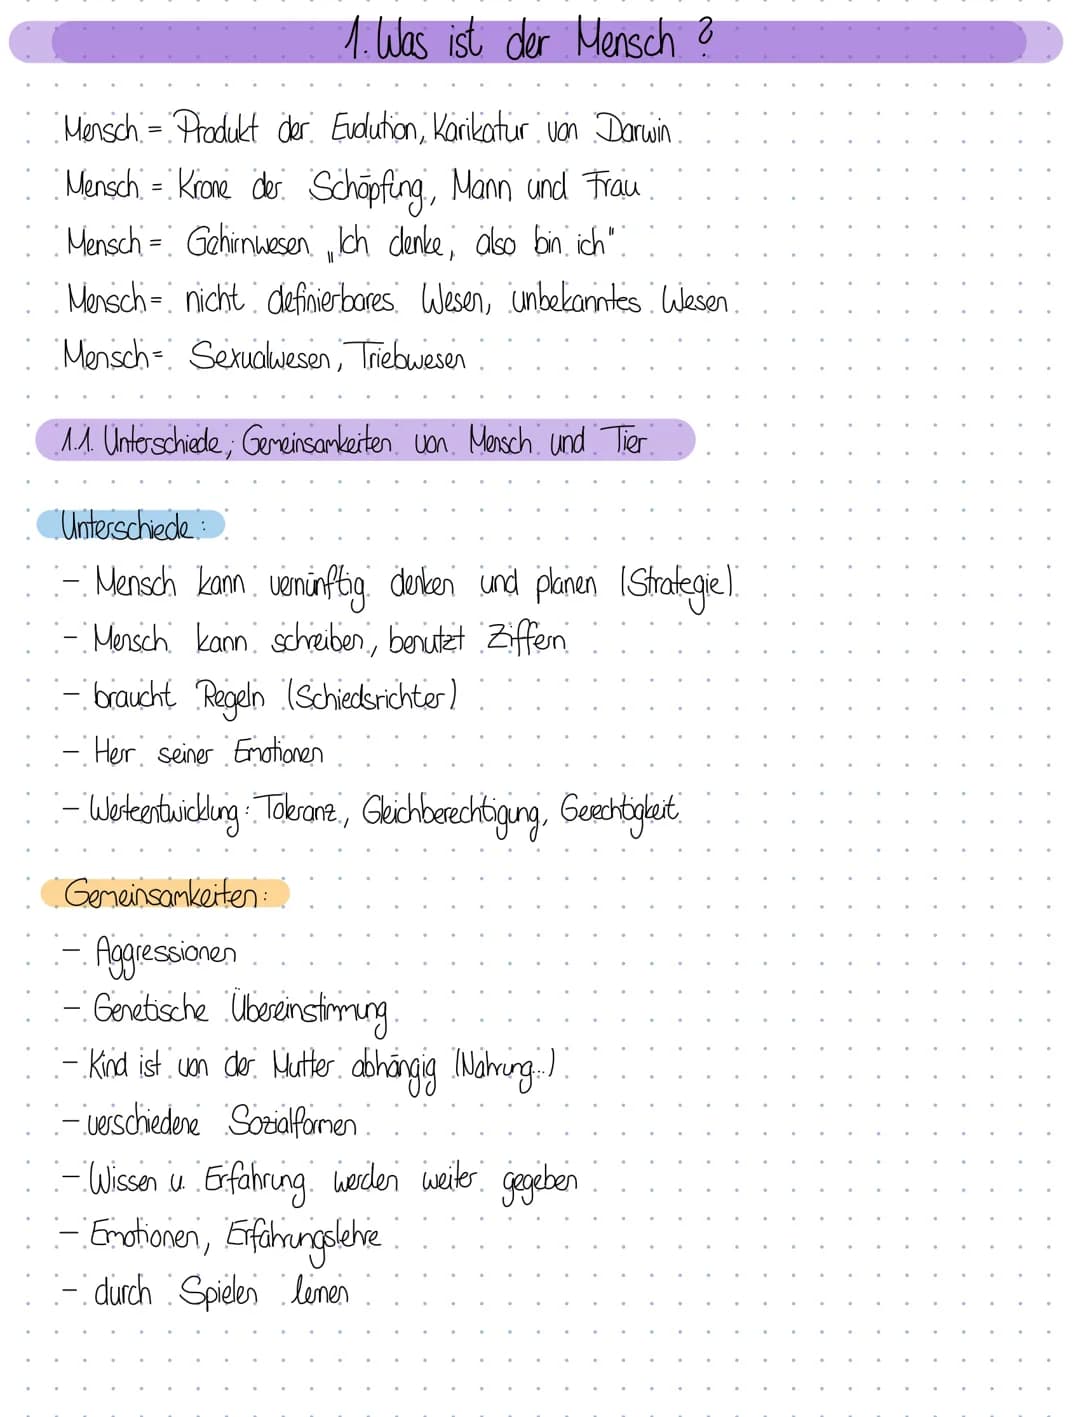 1. Was ist der Mensch ?
Mensch = Produkt der Evolution, Karikatur von Darwin
Mensch = Krone der Schöpfung, Mann und Frau
Mensch = Gehirnwesen „Ich denke, also bin ich"
Mensch = nicht definierbares Wesen, unbekanntes Wesen
Mensch = Sexualwesen, Triebwesen
1.1. Unterschiede, Gemeinsamkeiten von Mensch und Tier
Unterschiede:
- Mensch kann vernünftig denken und planen (Strategie)
- Mensch kann schreiben, benutzt Ziffern
- braucht Regeln (Schiedsrichter)
- Herr seiner Emotionen
- Werteentwicklung: Toleranz, Gleichberechtigung, Gerechtigkeit
Gemeinsamkeiten:
- Aggressionen
- Genetische Übereinstimmung
- Kind ist von der Mutter abhängig (Nahrung...)
- verschiedene Sozialformen
- Wissen u. Erfahrung werden weiter gegeben
- Emotionen, Erfahrungslehre
- durch Spielen lernen